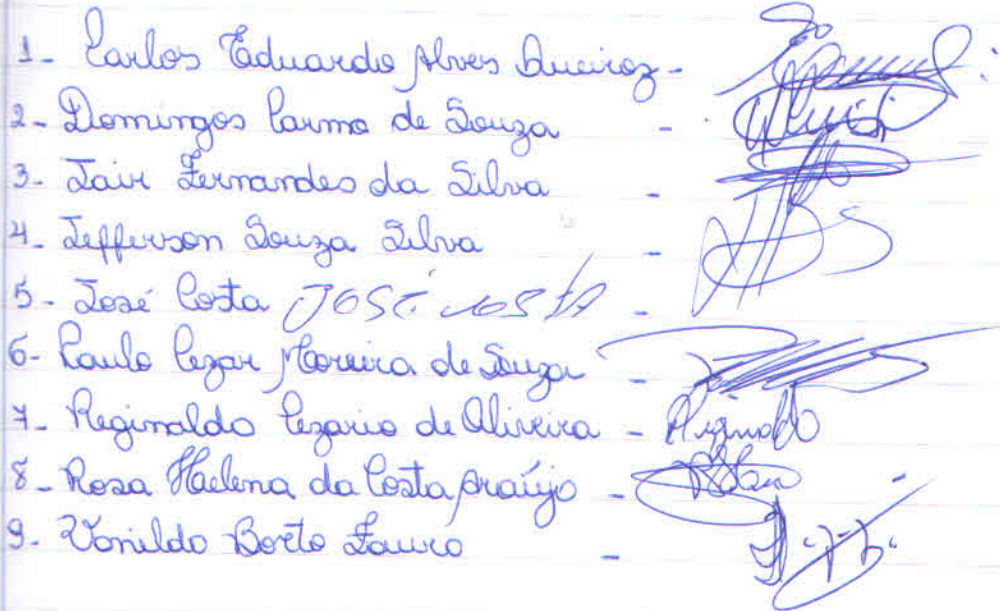 1- Carlos Eduardo Alves Queiroz -
2- Domingos Carmo de Souza -
3- Jair Fernandes da Silva -
4- Jefferson Souza Silva -
5- José Costa JOSÉ COSTA -
6- Paulo Cezar Moreira de Souza -
7- Reginaldo Cezario de Oliveira - Reginaldo
8- Rosa Helena da Costa Araújo -
9- Vonildo Borto Fauro -